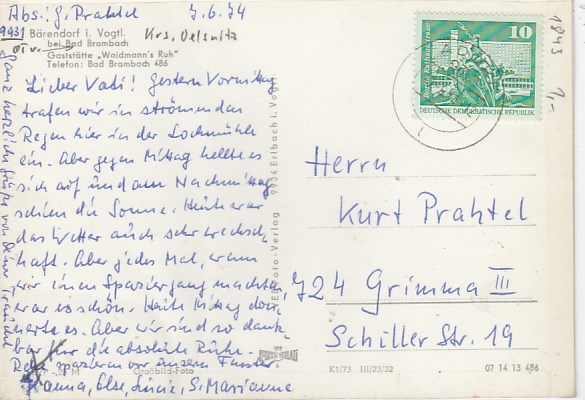 Abs: G. Prahtel 7.6.74
9931 Bärendorf i. Vogtl. Krs. Oelsnitz
bei Bad Brambach
Gaststätte „Waidmann's Ruh“
Telefon: Bad Brambach 486
Lieber Vati! Gestern Vormittag
trafen wir in strömendem
Regen hier in der Lochmühle
ein. Aber gegen Mittag hellte es
sich auf und am Nachmittag
schien die Sonne. Heute war
das Wetter auch sehr wechsel-
haft. Aber jedes Mal, wenn
wir einen Spaziergang machten,
war es schön. Heute Mittag don-
nerte es. Aber wir sind so dank-
bar für die absolute Ruhe.
Rehe spazieren vor unserem Fenster.
Hanna, Else, Lucie, S. Marianne
Ganz herzliche Grüße von Deiner
9934 Erlbach i. Vogtl.
Foto-Verlag
10
DEUTSCHE DEMOKRATISCHE REPUBLIK
1843
1,-
Herrn
Kurt Prahtel
724 Grimma III
Schiller Str. 19
M
Großbild-Foto
K1/73 III/25/32 07 14 13 486